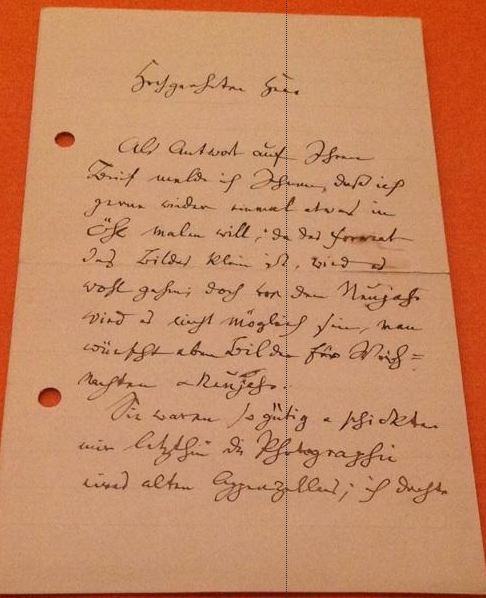 Hochgeehrter Herr
Als Antwort auf Ihren
Brief melde ich Ihnen, daß ich
gerne wieder einmal etwas in
Öhl malen will; da das format
des Bildes klein ist, wird es
wohl gehen; doch vor dem Neujahr
wird es nicht möglich sein, man
wünscht eben Bilder für Weih=
nachten & Neujahr.
Sie waren so gütig & schickten
mir letzthin die Photographie
eines alten Appenzellers; ich dachte